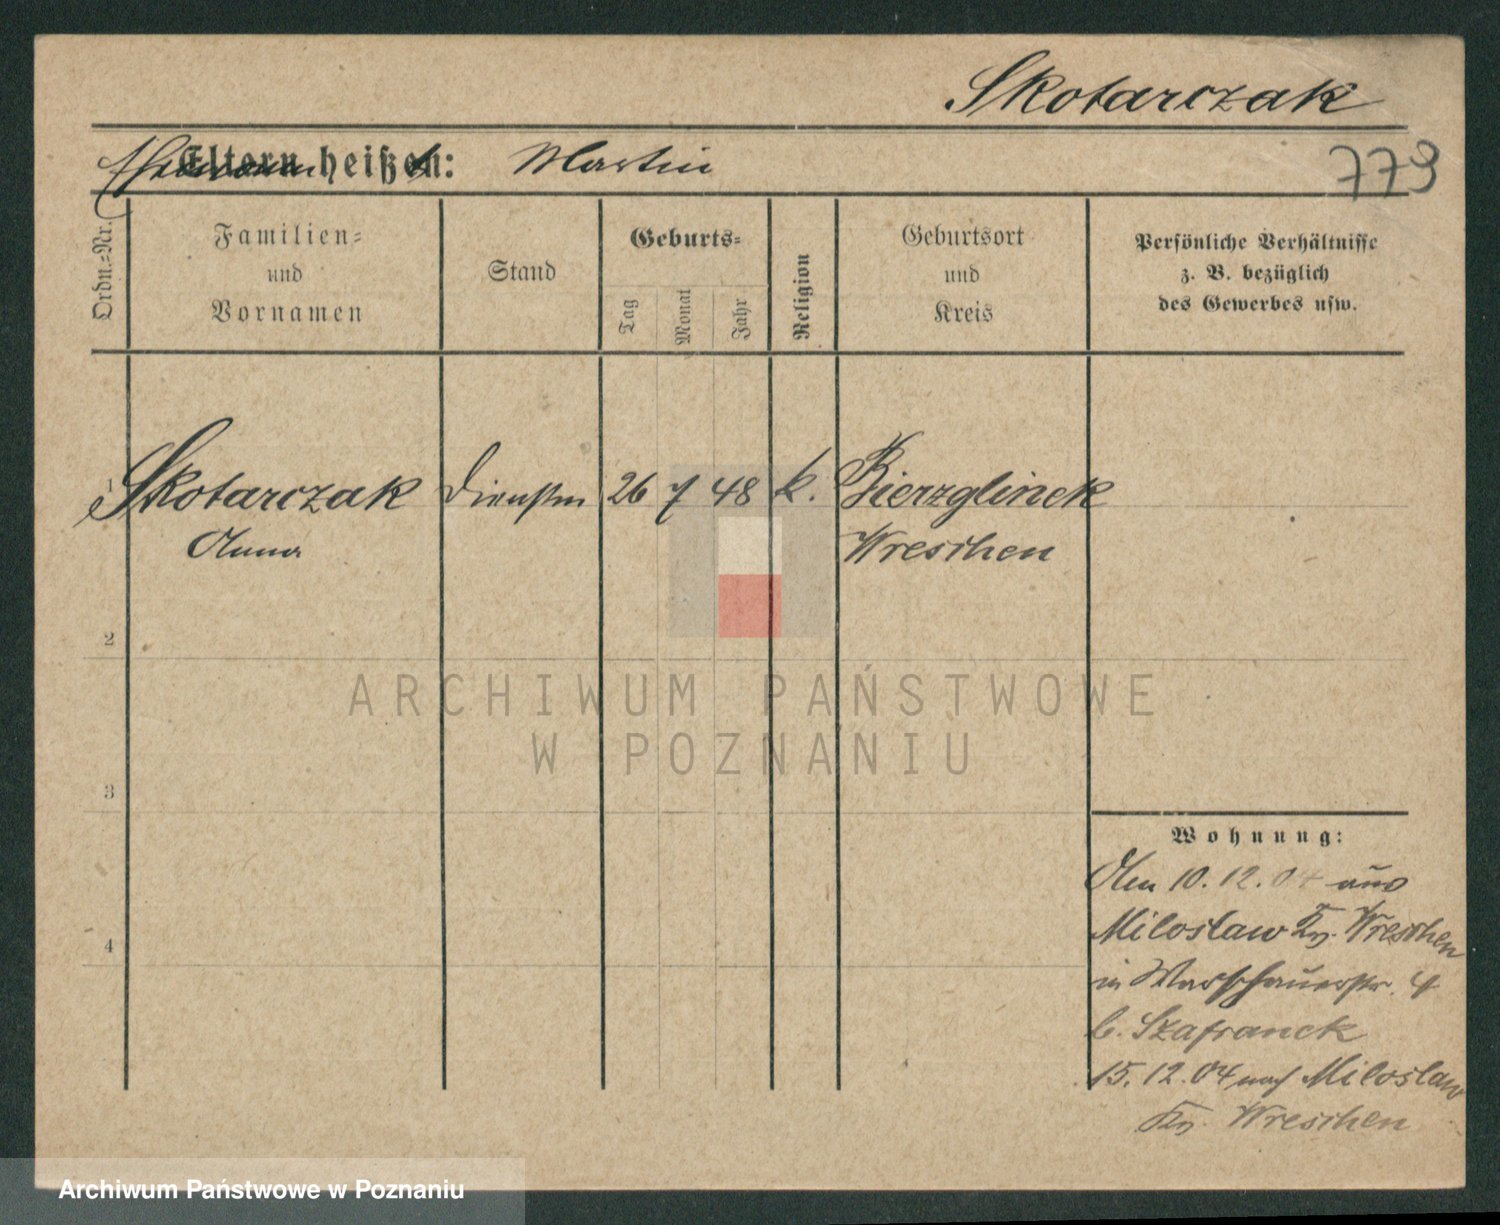 Skotarczak
Ehemann heißt: Martin
779
Ordn.-Nr.
Familien-
und
Vornamen
Stand
Geburts-
Tag
Monat
Jahr
Religion
Geburtsort
und
Kreis
Persönliche Verhältnisse
z. B. bezüglich
des Gewerbes usw.
1 Skotarczak Dienstm 26 7 48 k. Bierzglinek
Anna Wreschen
2
3
4
Wohnung:
Am 10.12.04 aus
Miloslaw Kr. Wreschen
in Warschauerstr. 4
b. Szafranek
15.12.04 nach Miloslaw
Kr. Wreschen
ARCHIWUM PAŃSTWOWE
W POZNANIU
Archiwum Państwowe w Poznaniu